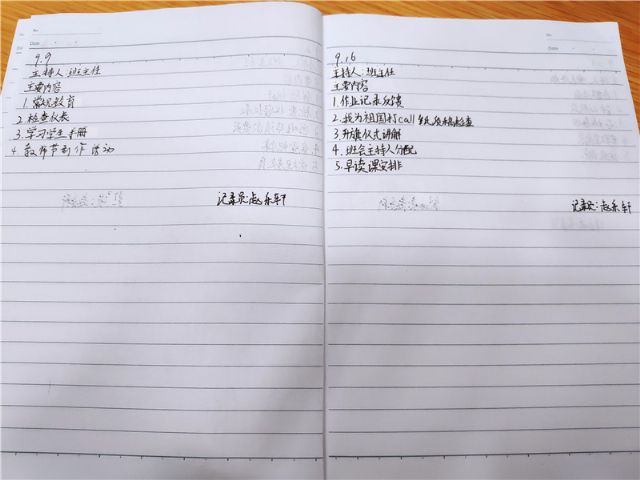 No.
Date
9.9
主持人:班主任
主要内容
1.常规教育
2.检查仪表
3.学习学生手册
4.教师节制作活动
记录员:赵乐轩
No.
Date
9.16
主持人:班主任
主要内容
1.作业记录反馈
2.我为祖国打call
3.升旗仪式讲解
4.班会主持人分配
5.早读课安排
记录员:赵乐轩